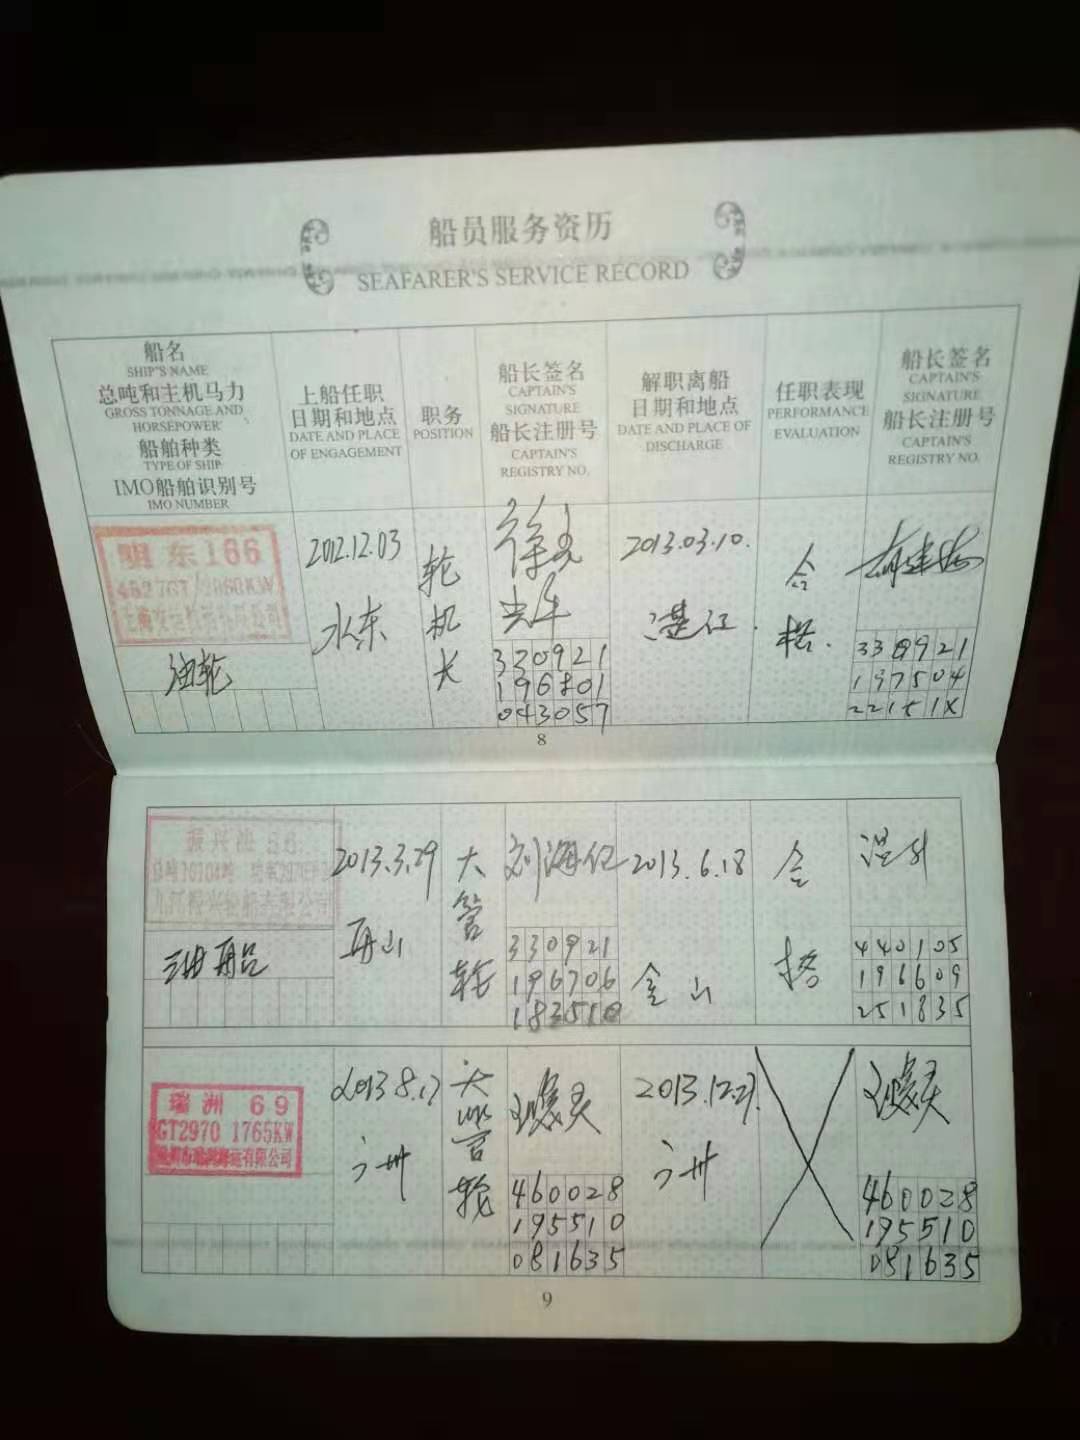 船员服务资历
SEAFARER'S SERVICE RECORD
船名
SHIP'S NAME
总吨和主机马力
GROSS TONNAGE AND
HORSEPOWER
船舶种类
TYPE OF SHIP
IMO船舶识别号
IMO NUMBER
上船任职
日期和地点
DATE AND PLACE
OF ENGAGEMENT
职务
POSITION
船长签名
CAPTAIN'S
SIGNATURE
船长注册号
CAPTAIN'S
REGISTRY NO.
解职离船
日期和地点
DATE AND PLACE OF
DISCHARGE
任职表现
PERFORMANCE
EVALUATION
船长签名
CAPTAIN'S
SIGNATURE
船长注册号
CAPTAIN'S
REGISTRY NO.
东166
油轮
2012.12.03
水东
轮
机
长
330921
196801
043057
2013.03.10.
湛江.
合
格.
330921
197504
8
油船
2013.3.29
舟山
大
管
轮
刘海
330921
196706
2013.6.18
金山
合
格
440105
196609
251835
瑞洲 69
GT2970 1765KW
2013 8.17
广州
大
管
轮
460028
195510
081635
2013.12.27.
广州
460028
195510
081635
9